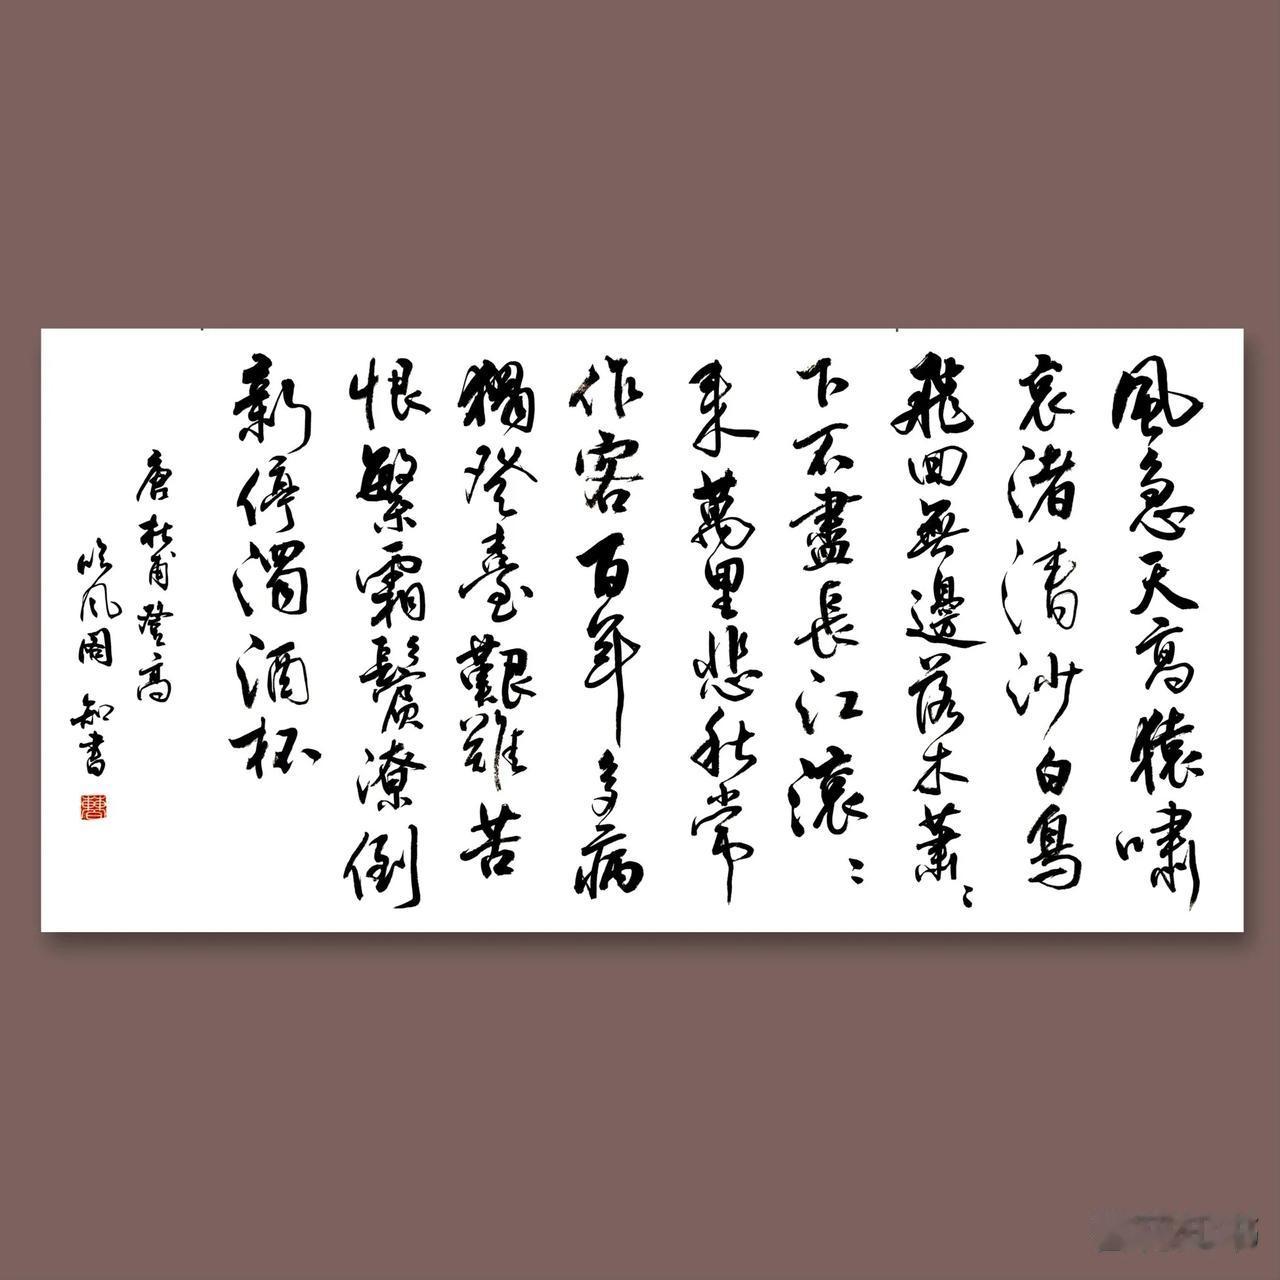 風急天高猿嘯
哀渚清沙白鳥
飛回無邊落木蕭〻
下不盡長江滾〻
来萬里悲秋常
作客百年多病
獨登臺艱難苦
恨繁霜鬢潦倒
新停濁酒杯
唐杜甫登高
风阁知書